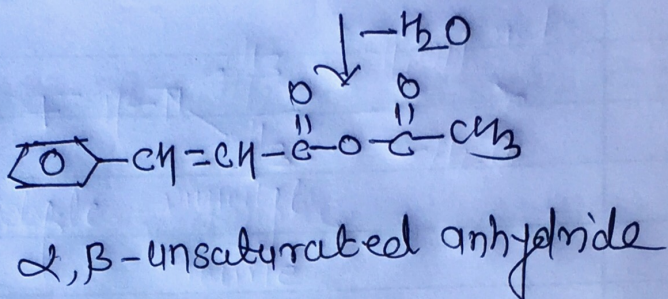 -H₂O
O O
|| ||
O-CH=CH-C-O-C-CH₃
α,β-unsaturated anhydride